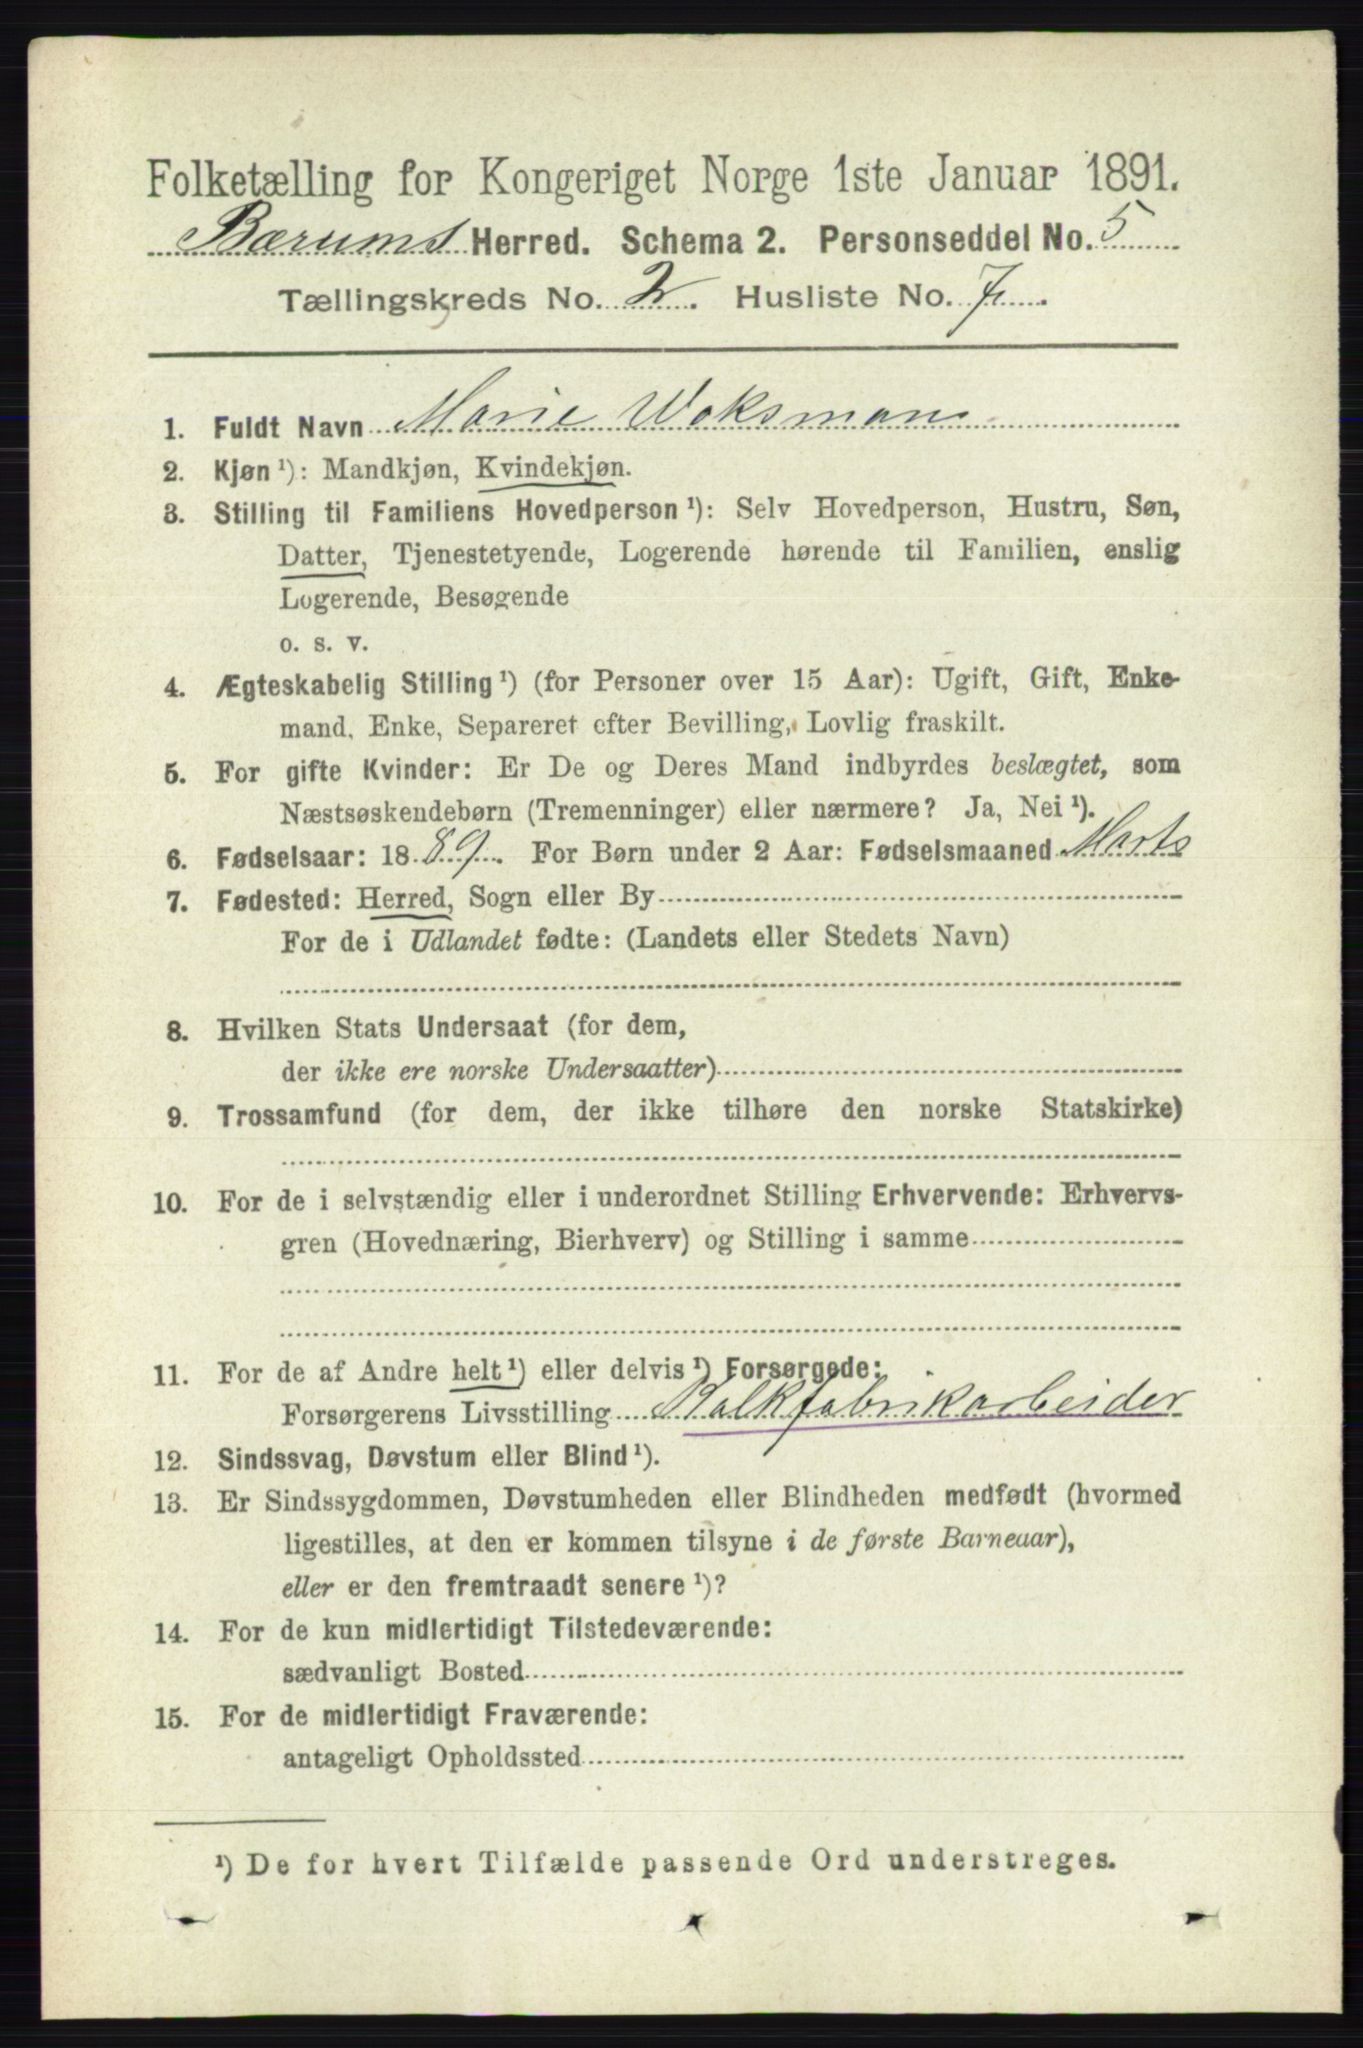 Folketælling for Kongeriget Norge 1ste Januar 1891.
Bærums Herred. Schema 2. Personseddel No. 5
Tællingskreds No. 2. Husliste No. 7.
1. Fuldt Navn Marie Woksman
2. Kjøn¹): Mandkjøn, Kvindekjøn.
3. Stilling til Familiens Hovedperson¹): Selv Hovedperson, Hustru, Søn,
Datter, Tjenestetyende, Logerende hørende til Familien, enslig
Logerende, Besøgende
o. s. v.
4. Ægteskabelig Stilling¹) (for Personer over 15 Aar): Ugift, Gift, Enke-
mand, Enke, Separeret efter Bevilling, Lovlig fraskilt.
5. For gifte Kvinder: Er De og Deres Mand indbyrdes beslægtet, som
Næstsøskendebørn (Tremenninger) eller nærmere? Ja, Nei¹).
6. Fødselsaar: 1889. For Børn under 2 Aar: Fødselsmaaned Marts
7. Fødested: Herred, Sogn eller By
For de i Udlandet fødte: (Landets eller Stedets Navn)
8. Hvilken Stats Undersaat (for dem,
der ikke ere norske Undersaatter)
9. Trossamfund (for dem, der ikke tilhøre den norske Statskirke)
10. For de i selvstændig eller i underordnet Stilling Erhvervende: Erhvervs-
gren (Hovednæring, Bierhverv) og Stilling i samme
11. For de af Andre helt¹) eller delvis¹) Forsørgede:
Forsørgerens Livsstilling Kalkfabrikarbeider
12. Sindssvag, Døvstum eller Blind¹).
13. Er Sindssygdommen, Døvstumheden eller Blindheden medfødt (hvormed
ligestilles, at den er kommen tilsyne i de første Barneaar),
eller er den fremtraadt senere¹)?
14. For de kun midlertidigt Tilstedeværende:
sædvanligt Bosted
15. For de midlertidigt Fraværende:
antageligt Opholdssted
¹) De for hvert Tilfælde passende Ord understreges.